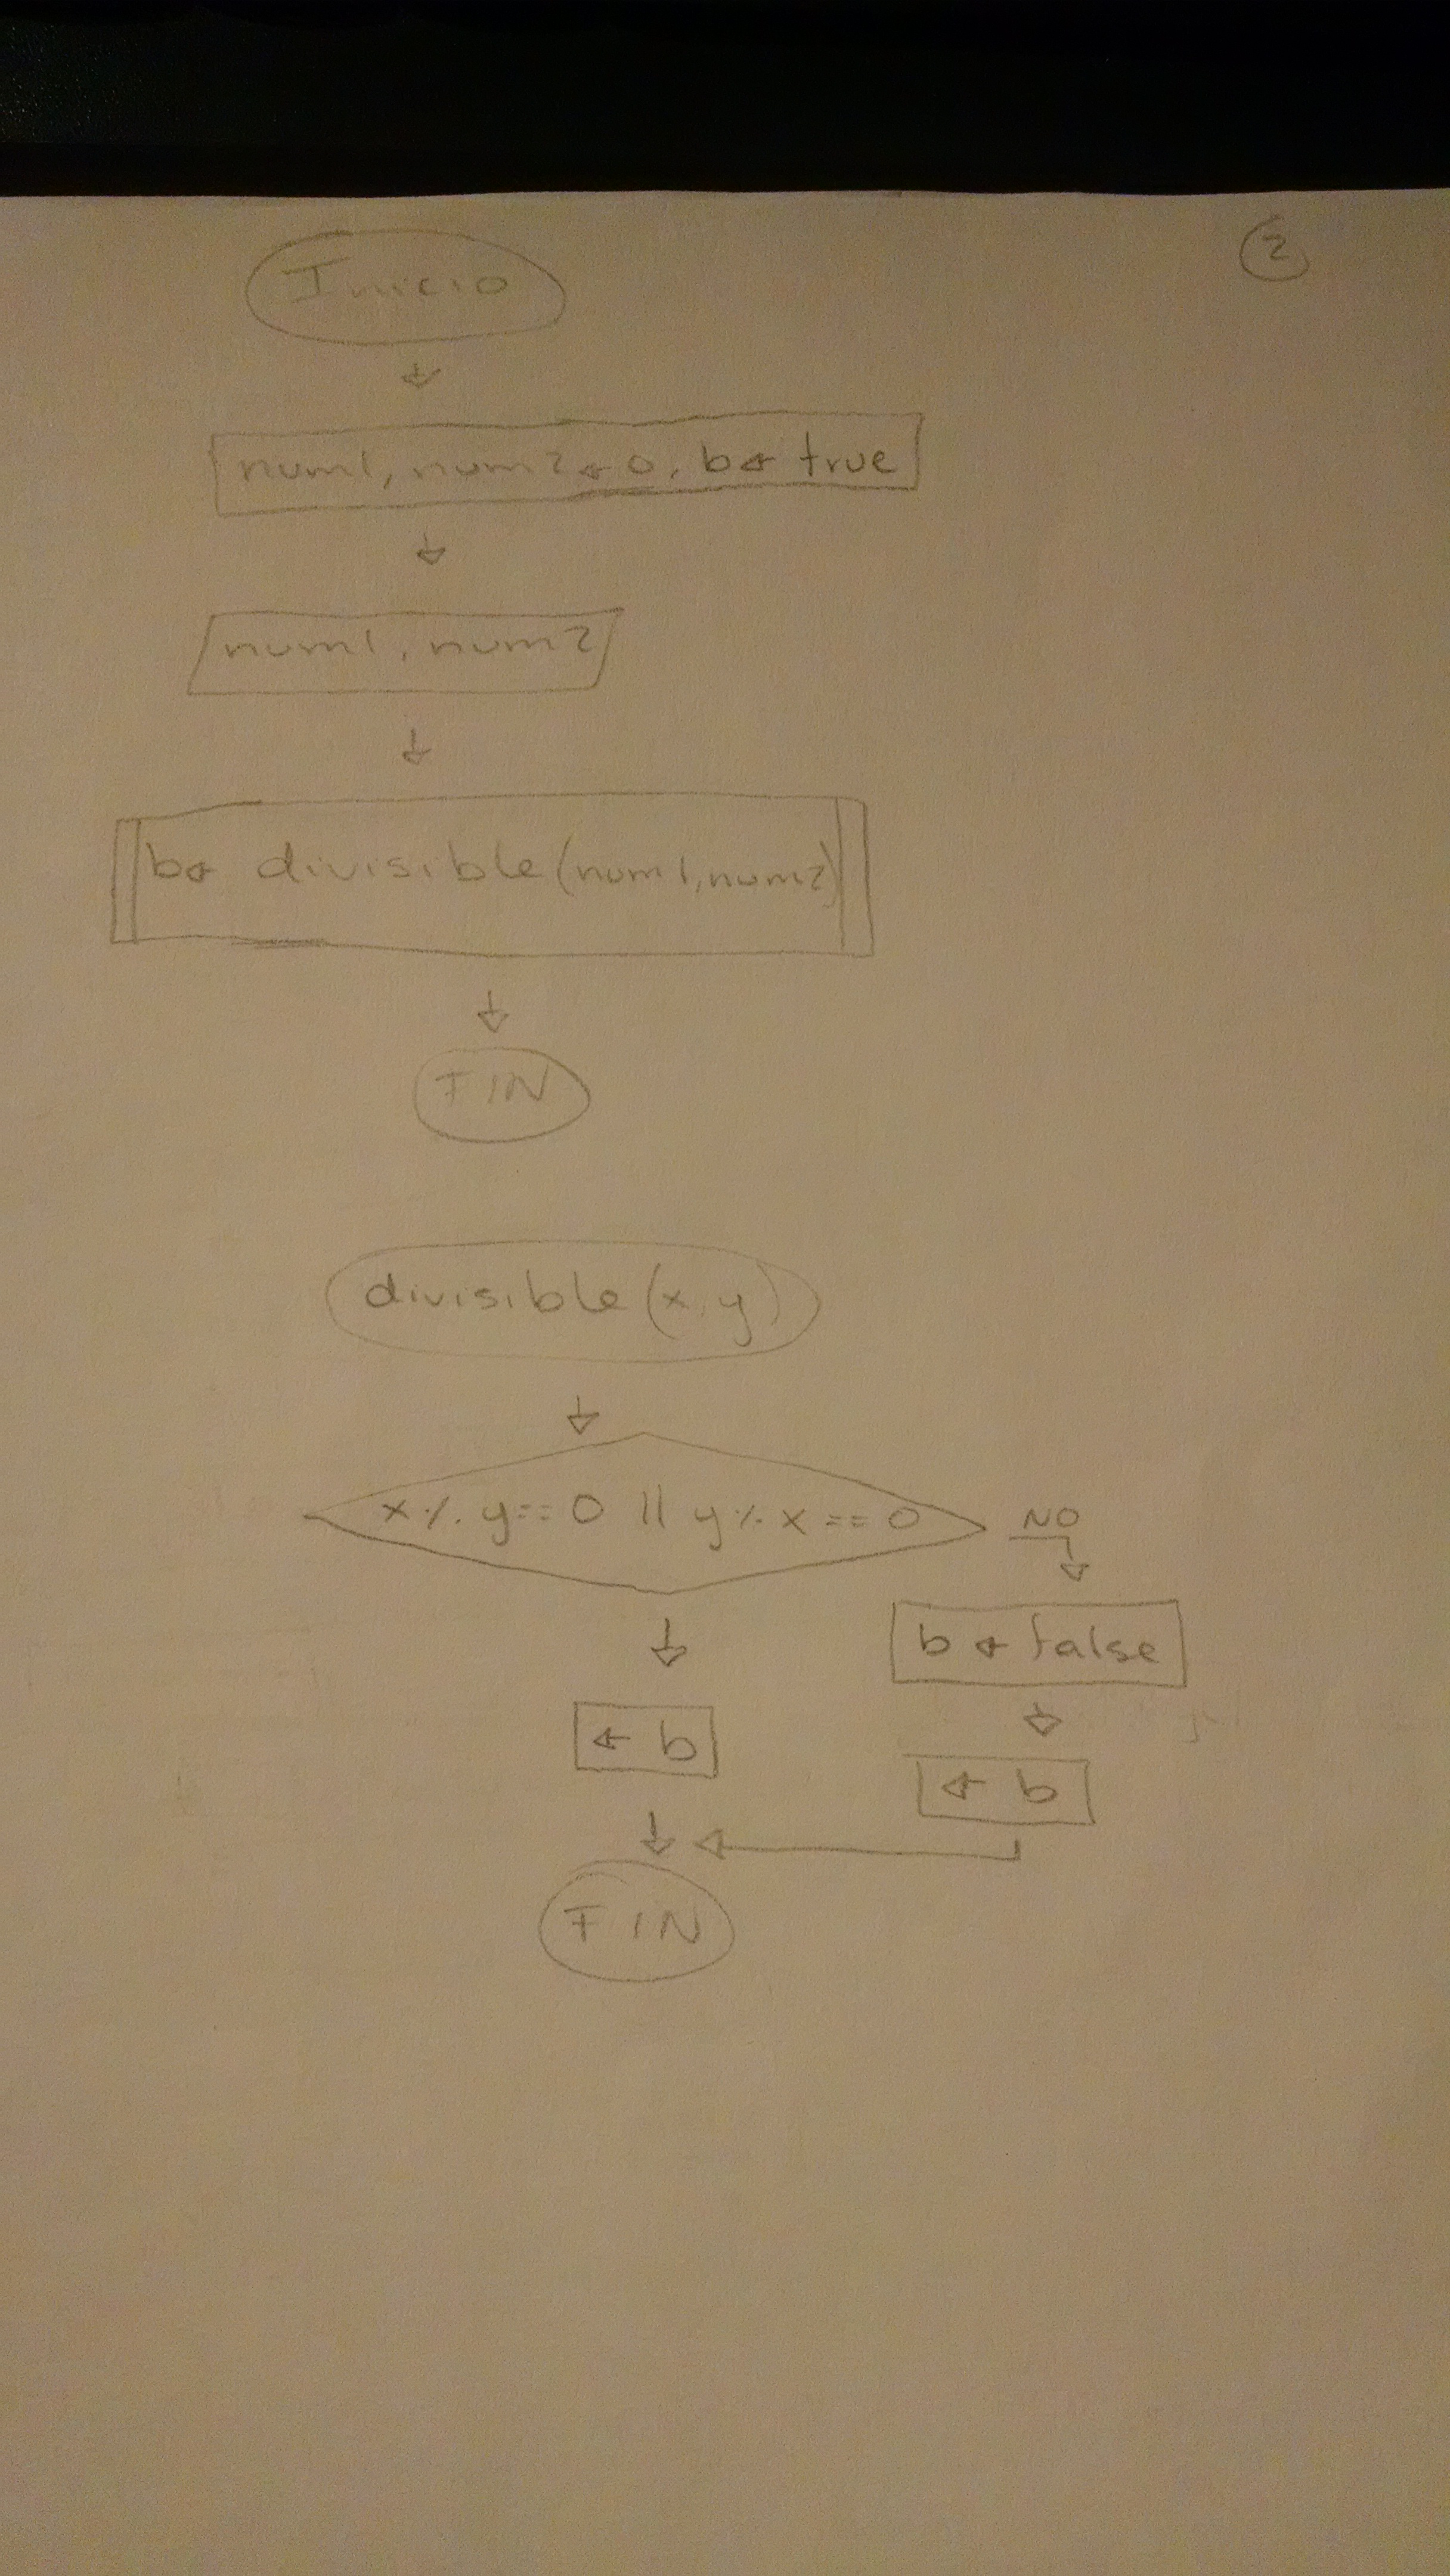 2
Inicio
num1, num2 ← 0, b ← true
num1, num2
b ← divisible(num1,num2)
FIN
divisible(x,y)
x % y == 0 || y % x == 0
NO
b ← false
← b
← b
FIN